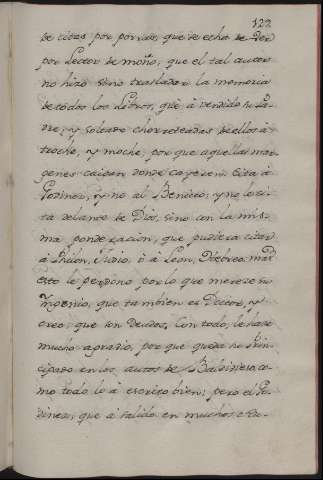 122
de cosas por
por Lector de moño, que el tal autor
no hizo sino trasladar la memoria
de todos los Libros, que à vendido su Pa-
dre, y soltado chorreteadas de ellos à
troche, y moche, por que aquellas mar-
genes caigan donde cayeren. Cita à
Godinez, y no al Benicio; y no lo ci-
ta delante de Dios, sino con la mis-
ma ponderacion, que pudiera citar
à Philon, Judio, ò à Leon, Hebreo: mas
esto le perdono por lo que merece su
Ingenio, que tambien es Doctor, y
creo, que son deudos. Con todo, le hace
mucho agravio, por que queda su
en los autos de
mo todo lo à escrito bien; pero el Go-
dinez, que à salido en muchos